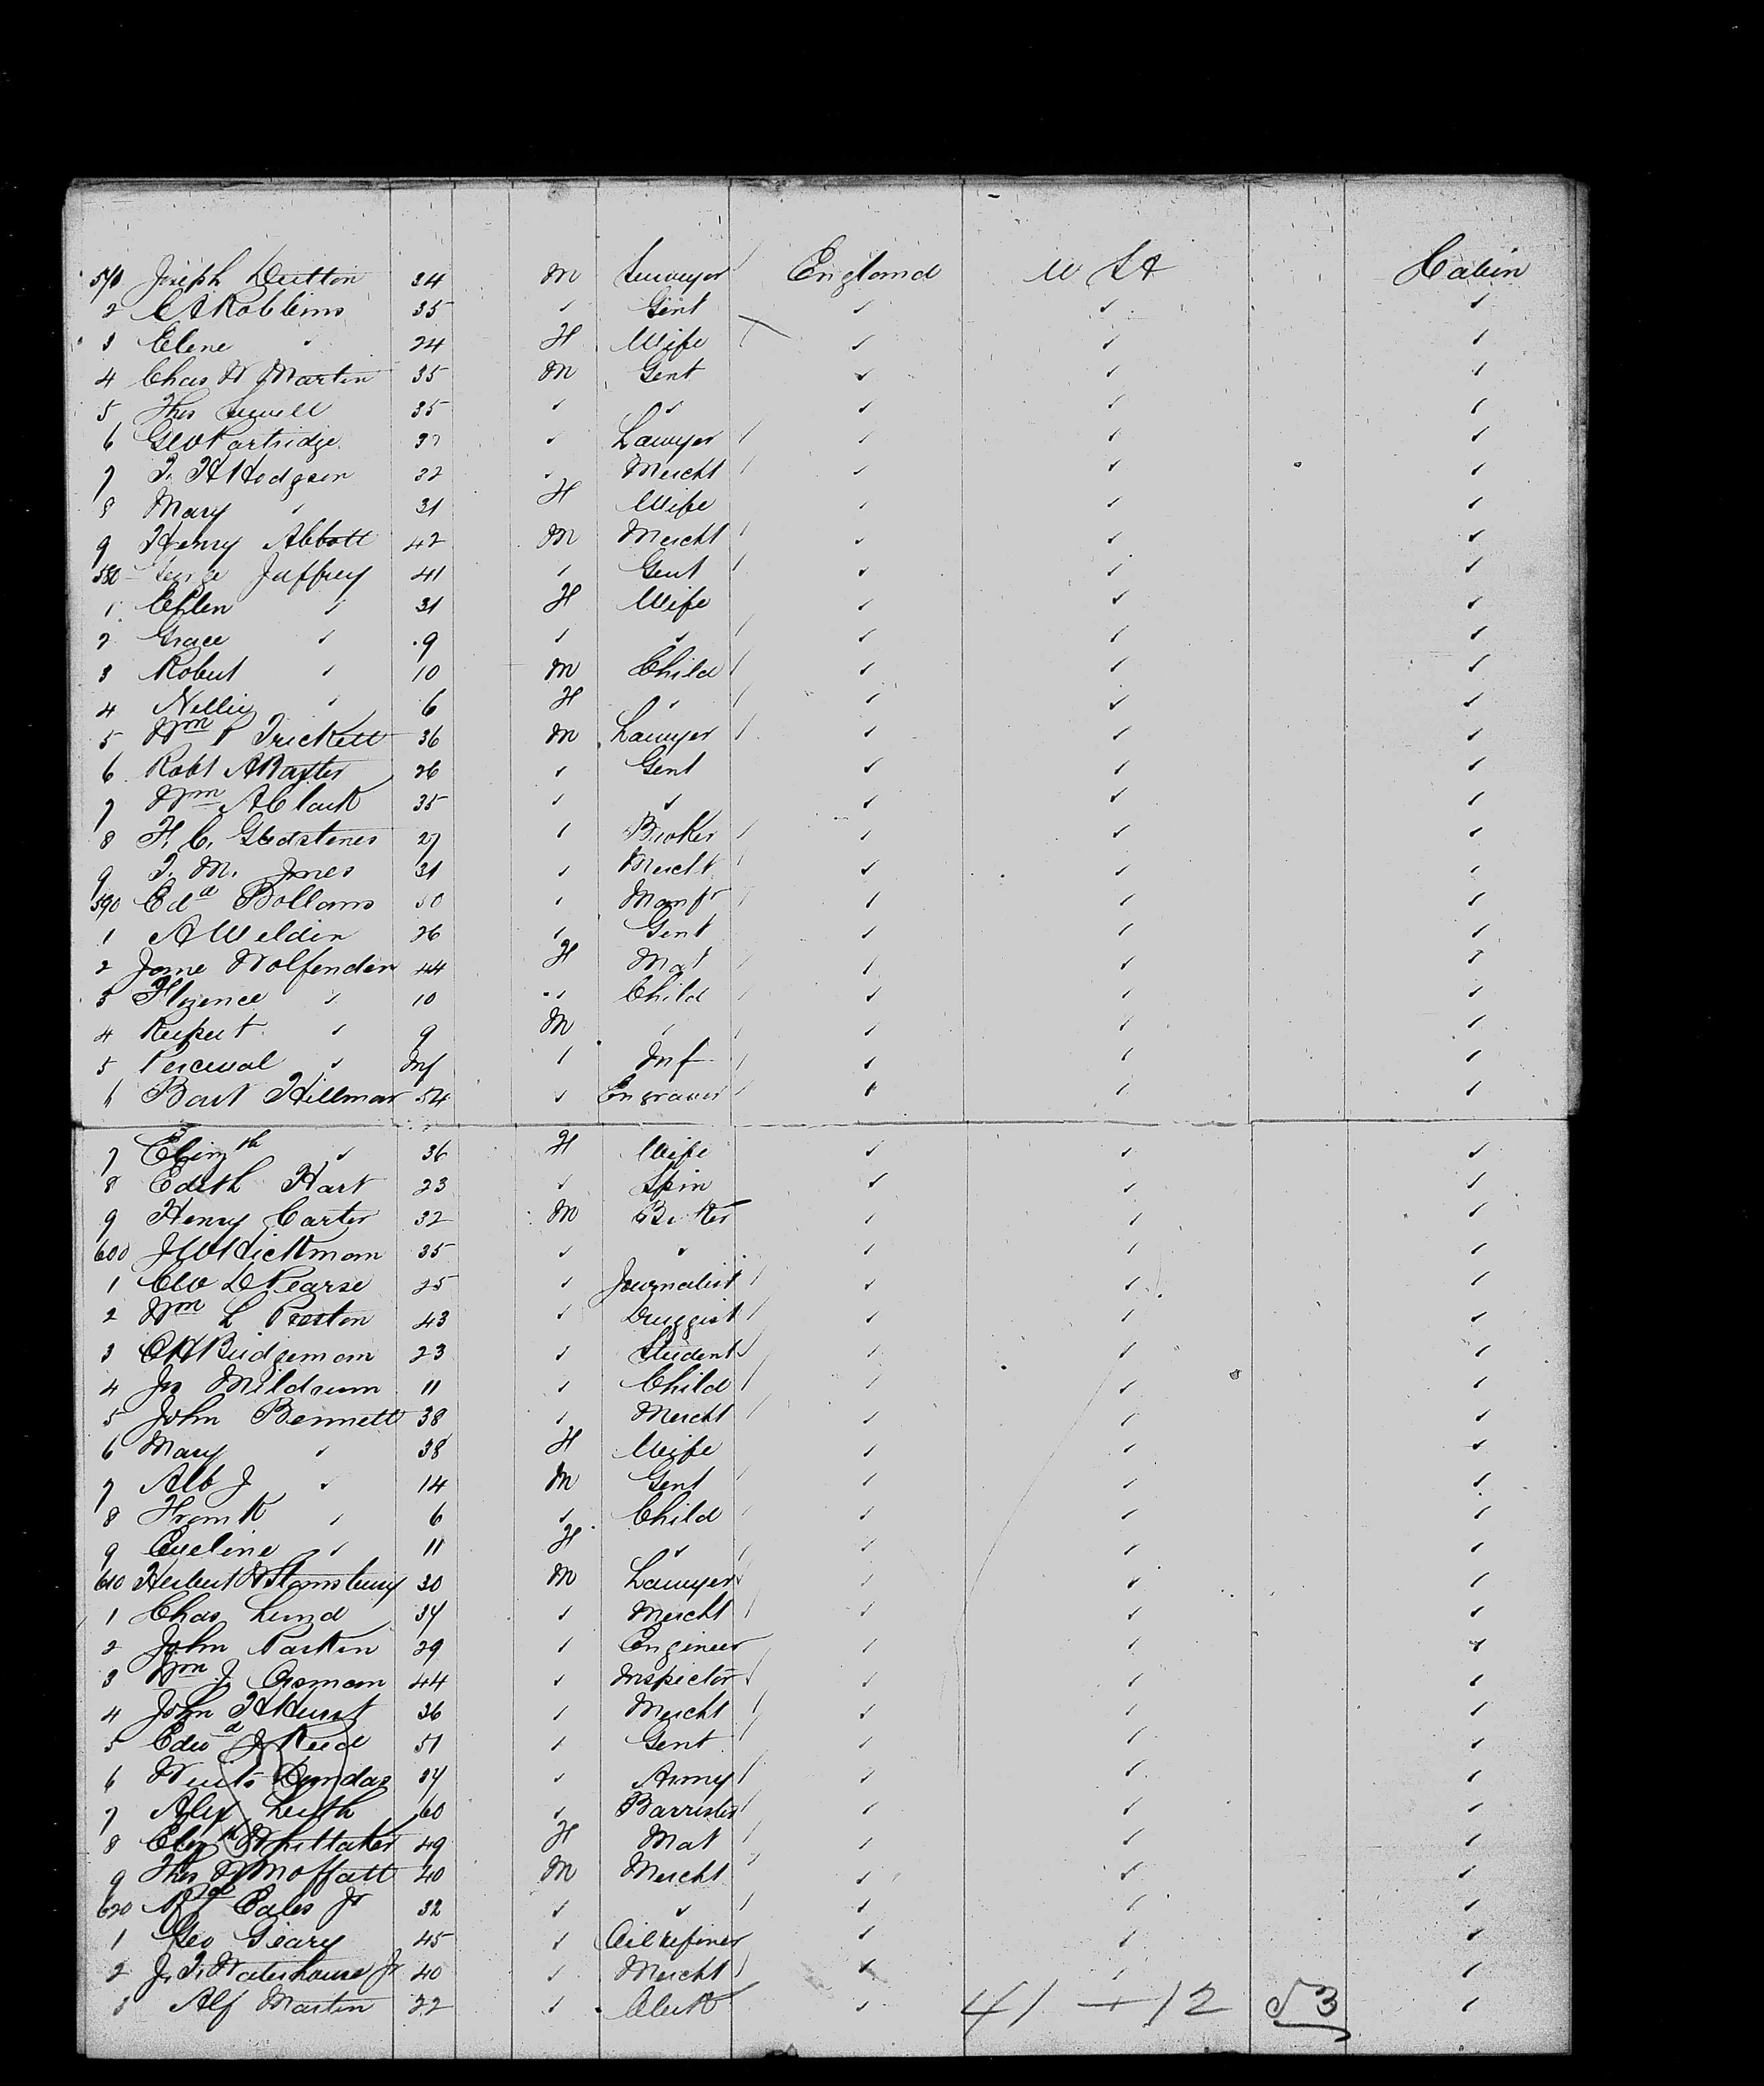 571 Joseph Dutton 34 M Surveyor England U St Cabin
2 C A Robbins 35 ✓ Gent ✓ ✓ ✓
3 Elene ✓ 24 F Wife ✓ ✓ ✓
4 Chas W Martin 35 M Gent ✓ ✓ ✓
5 Thos Sewell 35 ✓ ✓ ✓ ✓ ✓
6 Geo Partridge 37 ✓ Lawyer ✓ ✓ ✓
7 T. H Hodgson 32 ✓ Mercht ✓ ✓ ✓
8 Mary ✓ 31 F Wife ✓ ✓ ✓
9 Henry Abbott 42 M Mercht ✓ ✓ ✓
580 George Jaffrey 41 ✓ Gent ✓ ✓ ✓
1 Ellen ✓ 31 F Wife ✓ ✓ ✓
2 Grace ✓ 9 ✓ ✓ ✓ ✓ ✓
3 Robert ✓ 10 M Child ✓ ✓ ✓
4 Nellie ✓ 6 F ✓ ✓ ✓ ✓
5 Wm P Trickett 36 M Lawyer ✓ ✓ ✓
6 Robt A Baxter 26 ✓ Gent ✓ ✓ ✓
7 Wm A Clark 35 ✓ ✓ ✓ ✓ ✓
8 F. C. Gladstones 27 ✓ Broker ✓ ✓ ✓
9 T. M. Jones 31 ✓ Mercht ✓ ✓ ✓
590 Edd Bollans 50 ✓ Manfr ✓ ✓ ✓
1 A Weldin 26 ✓ Gent ✓ ✓ ✓
2 Jane Wolfenden 44 F Mat ✓ ✓ ✓
3 Florence ✓ 10 ✓ Child ✓ ✓ ✓
4 Rupert ✓ 9 M ✓ ✓ ✓ ✓
5 Percival ✓ Inf ✓ Inf ✓ ✓ ✓
6 Bart Hillman 54 ✓ Engraver ✓ ✓ ✓
7 Elizth ✓ 36 F Wife ✓ ✓ ✓
8 Edith Hart 23 ✓ Spin ✓ ✓ ✓
9 Henry Carter 32 M ✓ ✓ ✓
600 J W Hickman 35 ✓ ✓ ✓ ✓ ✓
1 Pearse 25 ✓ Journalist ✓ ✓ ✓
2 Wm L Preston 43 ✓ Druggist ✓ ✓ ✓
3 C H Bridgeman 23 ✓ Student ✓ ✓ ✓
4 Jn Mildrum 11 ✓ Child ✓ ✓ ✓
5 John Bennett 38 ✓ Mercht ✓ ✓ ✓
6 Mary ✓ 38 F Wife ✓ ✓ ✓
7 Alb J ✓ 14 M Gent ✓ ✓ ✓
8 Frank ✓ 6 ✓ Child ✓ ✓ ✓
9 Eveline ✓ 11 F ✓ ✓ ✓ ✓
610 Herbert W Stansbury 30 M Lawyer ✓ ✓ ✓
1 Chas Lund 34 ✓ Mercht ✓ ✓ ✓
2 John Parkin 29 ✓ Engineer ✓ ✓ ✓
3 Wm J Osman 44 ✓ Inspector ✓ ✓ ✓
4 John H Hurst 36 ✓ Mercht ✓ ✓ ✓
5 Edwd J Reed 51 ✓ Gent ✓ ✓ ✓
6 Dundas 34 ✓ Army ✓ ✓ ✓
7 Alex Leith 60 ✓ Barrister ✓ ✓ ✓
8 Elizth Whittaker 49 F Mat ✓ ✓ ✓
9 Thos W Moffatt 40 M Mercht ✓ ✓ ✓
620 Eales Jr 32 ✓ ✓ ✓ ✓ ✓
1 Geo Geary 45 ✓ Oil refiner ✓ ✓ ✓
2 J. T. Waterhouse Jr 40 ✓ Mercht ✓ ✓ ✓
3 Alf Martin 22 ✓ Clerk ✓ ✓
41 + 12 53